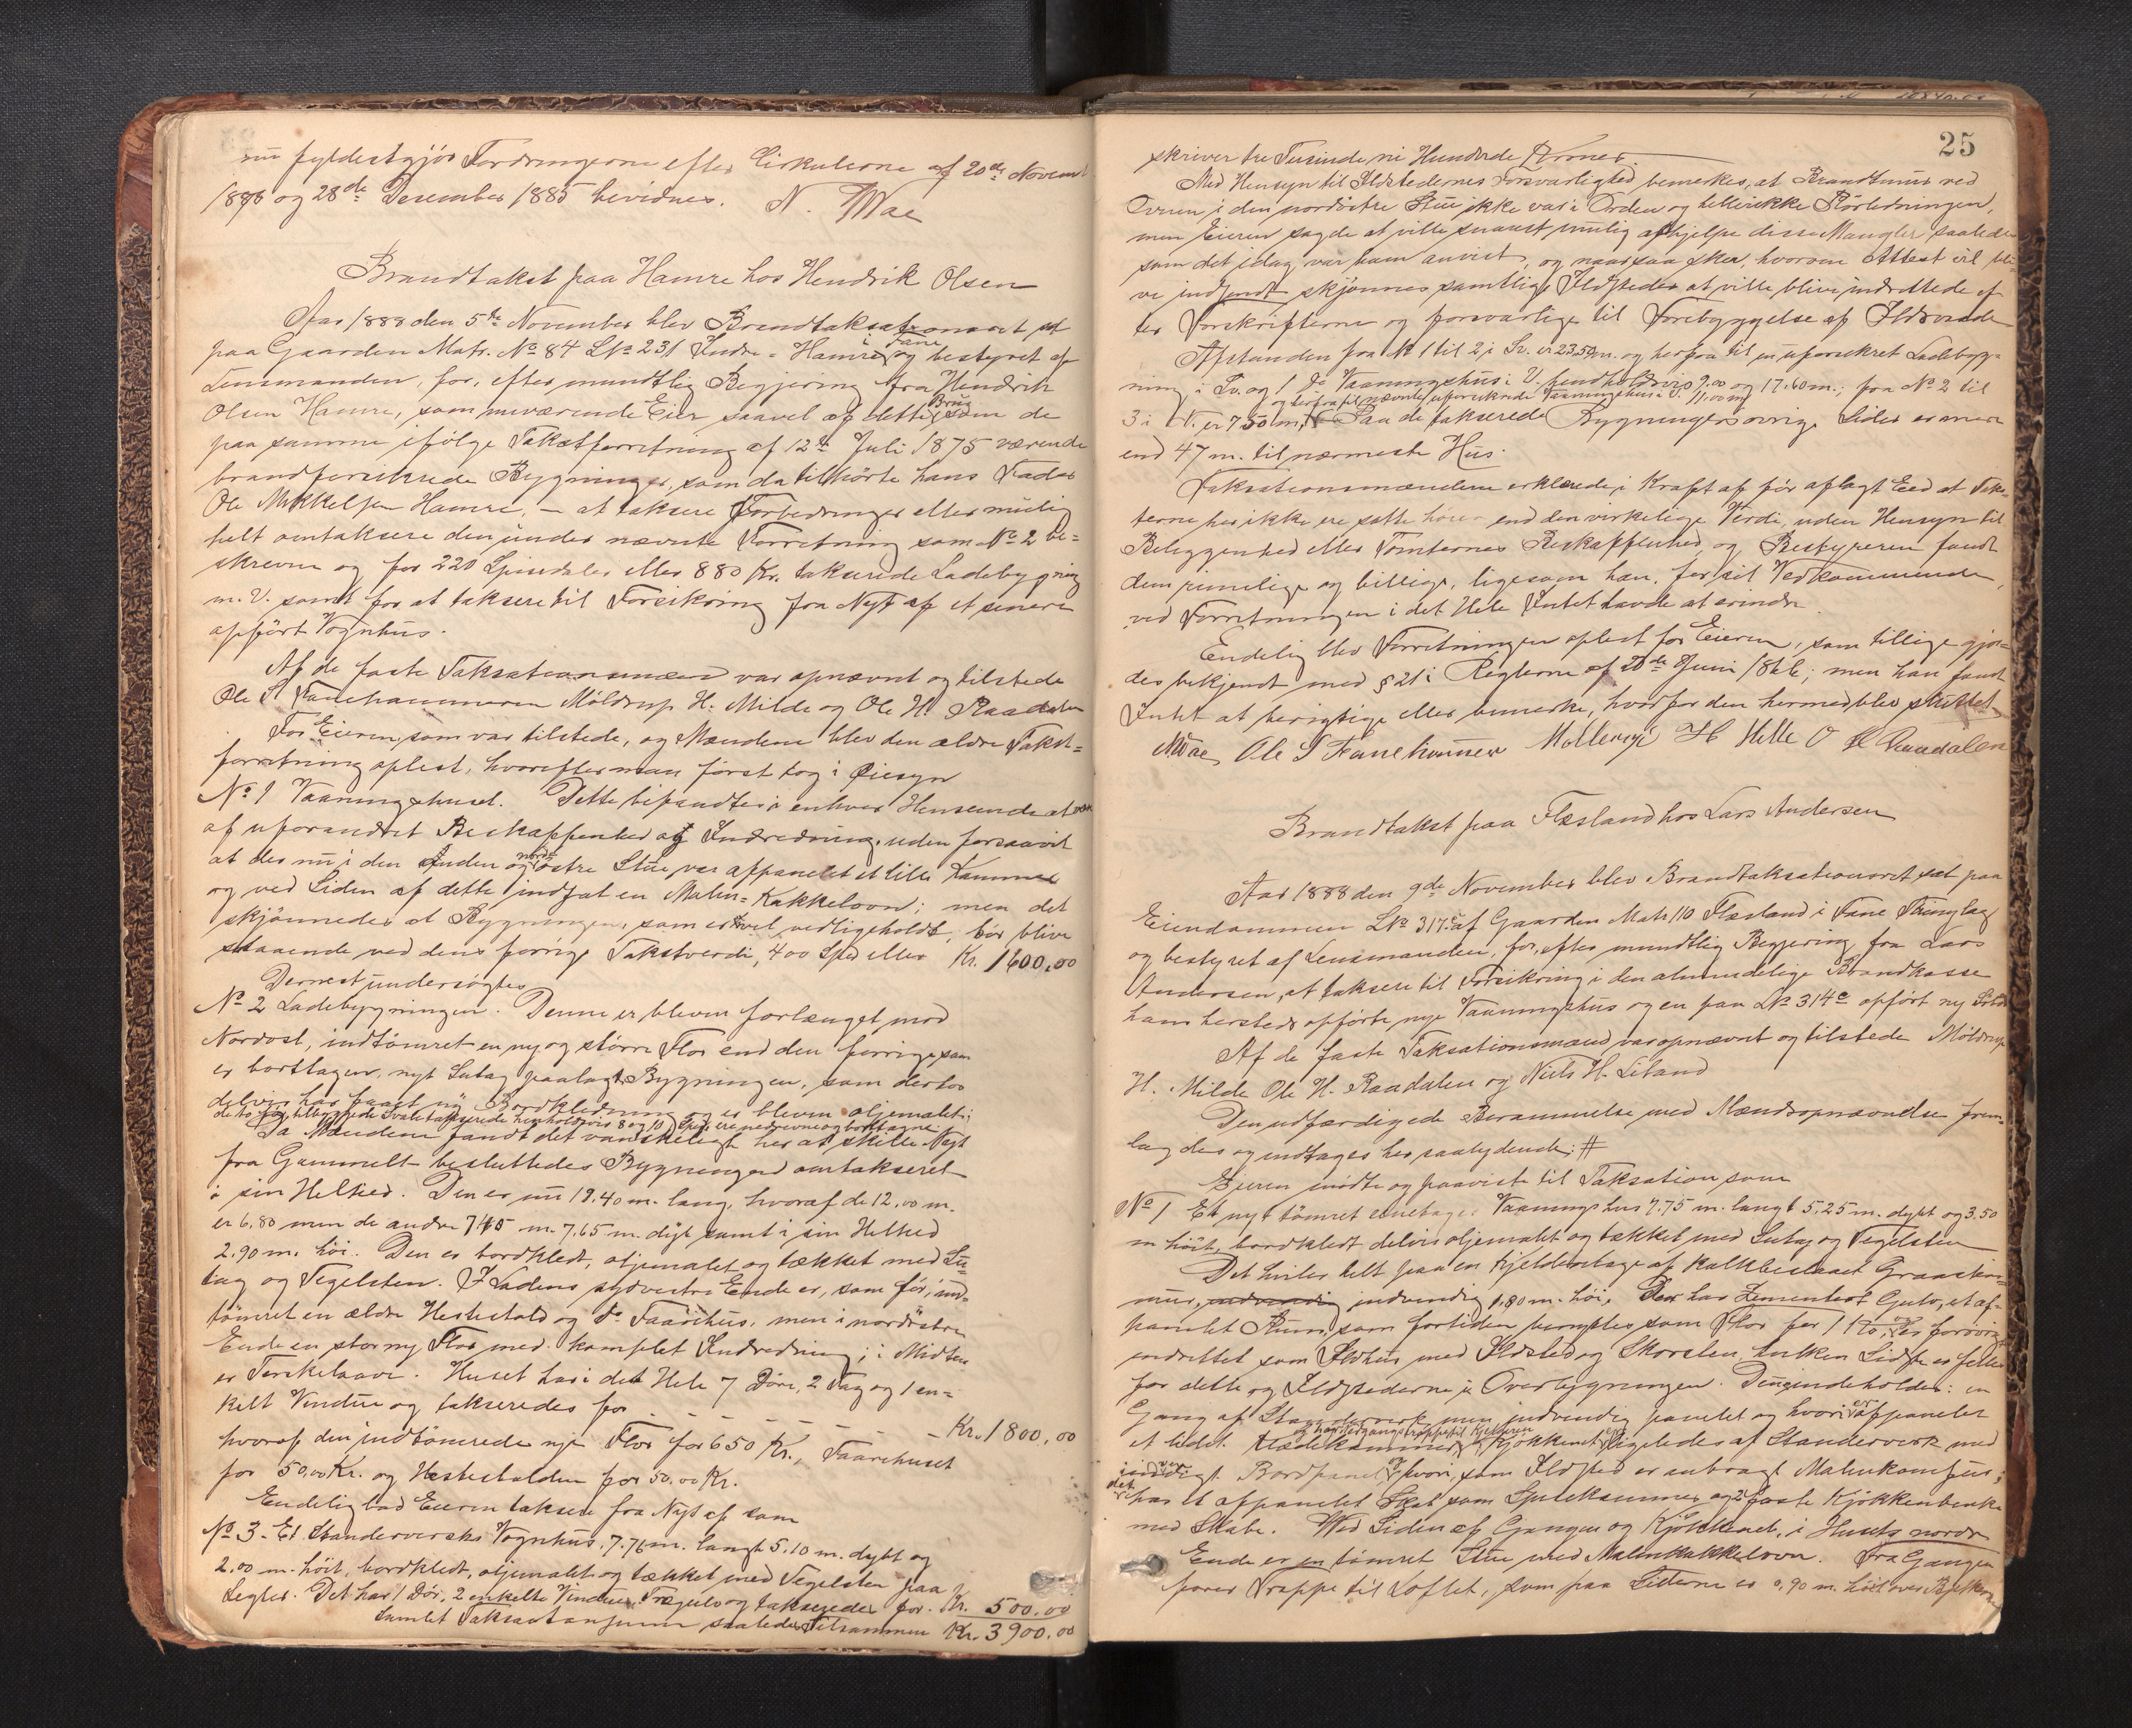 nu fyldestgjör Fordringerne efter Cirkulerne af 20de Novemb
1876 og 28de Desember 1885 bevidnes. N. Moe
Brandtakst paa Hamre hos Hendrik Olsen
Aar 1888 den 5te November blev Brandtaksationsret sat
paa Gaarden Matr. No 84 LNo 231 Indre-Hamre i Fane og bestyret af
Lensmanden, for, efter mundtlig Begjering fra Hendrik
Olsen Hamre, som nuværende Eier saavel af dette Brug som de
paa samme ifölge Takstforretning af 12te Juli 1875 værende
brandforsikrede Bygninger, som da tilhörte hans Fader
Ole Mikkelsen Hamre, – at taksere Forbedringer eller mulig
helt omtaksere den under nævnte Forretning som No 2 be-
skrevne og for 220 Spesidaler eller 880 Kr. takserede Ladebygning
m.V. samt for at taksere til Forsikring fra Nyt af et senere
opfört Vognhus.
Af de faste Taksationsmænd var opnævnt og tilstede
Ole S. Fanehammeren Möldrup H. Milde og Ole H. Raadalen
For Eieren, som var tilstede, og Mændene blev den ældre Takst-
forretning oplest, hvorefter man först tog i Öiesyn
No 1 Vaaningshuset. Dette befandtes i enhver Henseende at være
af uforandret Beskaffenhed og Indredning, uden forsaavit
at der nu i den Enden og nordöstre Stue var afpanelet et lille Kammer
og ved Siden af dette indsat en Malm-Kakkelovn; men det
skjönnedes at Bygningen, som er vel vedligeholdt, bör blive
staaende ved dens forrige Takstverdi, 400 Spd eller Kr. 1600,00
Dernest undersögtes
No 2 Ladebygningen. Denne er bleven forlænget mod
Nordost, indtömret en ny og större Flor end den forrige, som
er borttagen, nyt Sutag paalagt Bygningen, som derhos
delvis har faaet ny Bordklædning og er bleven oljemalet;
de to tilbyggede Svale takserede henholdsvis 8 og 10 Spd. ere nedrevne og borttagne.
Da Mændene fandt det vanskeligt her at skille Nyt
fra Gammelt besluttedes Bygningen omtakseret
i sin Helhed. Den er nu 19.40 m. lang, hvoraf de 12,00 m.
er 6,80 men de andre 7,45 m. 7,65 m. dyb samt i sin Helhed
2.90 m. höi. Den er bordklædt, oljemalet og tækket med Su-
tag og Tegelsten. I Ladens sydvestre Ende er, som för, ind-
tömret en ældre Hestestald og do Faarehus, men i nordöstre
Ende en stor ny Flor med komplet Indredning; i Midten
er Terskelaave. Huset har i det Hele 7 Döre, 2 Fag og 1 en-
kelt Vindue og takseredes for – – – – – – Kr. 1800,00
hvoraf den indtömrede nye Flor for 650 Kr., Faarehuset
for 50,00 Kr. og Hestestalden for 50,00 Kr.
Endelig bad Eieren taksere fra Nyt af som
No 3 - Et Standerverks Vognhus, 7.76 m. langt 5.10 m. dybt og
2,00 m. höit, bordklædt, oljemalet og tækket med Tegelsten paa
Legter. Det har 1 Dör, 2 enkelte Vinduer, Trægulv og takseredes for. Kr. 500.00
Samlet Taksationssum saaledes Tilsammen Kr. 3900.00
25
skriver tre Tusinde ni Hundrede Kroner.
Med Hensyn til Ildstedernes Forsvarlighed bemerkes, at Brandmur ved
Ovnen i den nordöstre Stue ikke var i Orden og hellerikke Rörledningen,
men Eieren sagde at ville snarest mulig afhjelpe disse Mangler saaledes
som det idag var ham anvist, og naar saa sker, hvorom Attest vil bli-
ve indsendt skjönnes samtlige Ildsteder at ville blive indrettede ef-
ter Forskrifterne og forsvarlige til Forebyggelse af Ildsvaade
Afstanden fra No 1 til 2 i Sv. er 23.50 m. og herfra til en uforsikret Ladebyg-
ning i Sv. og 1 do Vaaningshus i V. henholdsvis 9.00 og 17.60 m.; fra No 2 til
3 i V. er 7.50 m. og herfra til nævnte uforsikrede Vaaningshus i S. 11.00 m. Paa de takserede Bygningers övrige Sider er mere
end 47 m. til nærmeste Hus.
Taksationsmændene erklærede, i Kraft af för aflagt Eed at Taks-
terne her ikke ere satte höiere end den virkelige Verdi, uden Hensyn til
Beliggenhed eller Tomternes Beskaffenhed, og Bestyreren fandt
dem rimelige og billige, ligesom han, for sit Vedkommende,
ved Forretningen i det Hele Intet havde at erindre.
Endelig blev Forretningen oplest for Eieren, som tillige gjor-
des bekjendt med § 21 i Reglerne af 20de Juni 1866; men han fandt
Intet at berigtige eller bemerke, hvorfor den hermed blev sluttet
N Moe, Ole S Fanehammer H Helle O H Raadalen
Brandtakst paa Flesland hos Lars Andersen
Aar 1888 den 9de November blev Brandtaksationsret sat paa
Eiendommen LNo 317c af Gaarden Matr 110 Flesland i Fane Thinglag
og bestyret af Lensmanden, for, efter mundtlig Begjering fra Lars
Andersen, at taksere til Forsikring i den almindelige Brandkasse
hans hersteds opförte nye Vaaningshus og en paa LNo 314c opfört ny
Af de faste Taksationsmænd var opnævnt og tilstede Möldrup
H. Milde Ole H. Raadalen og Niels H. Liland
Den udfærdigede Berammelse med Mændsopnævnelse frem-
lagdes og indtages her saalydende: #
Eieren mödte og paaviste til Taksation som
No 1 Et nyt tömret enetages Vaaningshus 7.75 m. langt 5.25 m. dybt og 3.50
m höit, bordklædt delvis oljemalet og tækket med Sutag og Tegelsten
Det hviler helt paa en Kjelderetage af kalkbeslaaet Graasten-
mur, indvendig 1,80 m. höi. Den har Zementert Gulv, et af-
panelet Rum, som fortiden benyttes som Flor for 1 Ko, er forövrigt
indrettet som Ildhus med Ildsted og Skorsten, hvilken Sidste er felles
for dette og Ildstederne i Overbygningen. Denne indeholder: en
Gang af Standerverk men indvendig panelet og hvori er afpanelet
et lidet Klædekammer og har Nedgangstrappe til Kjelderen, Kjökkenet ligeledes af Standerverk med
indvendigt Bordpanel og hvori, som Ildsted er anbragt Malmkomfur;
det har et afpanelet Skab som Spisekammer og 2 faste Kjökkenbenke
med Skabe. Ved Siden af Gangen og Kjökkenet, i Husets nordre
Ende er en tömret Stue med Malmkakkelovn. Fra Gangen
förer Trappe til Loftet, som paa Sidderne er 0,90 m. höit over Bjelkerne